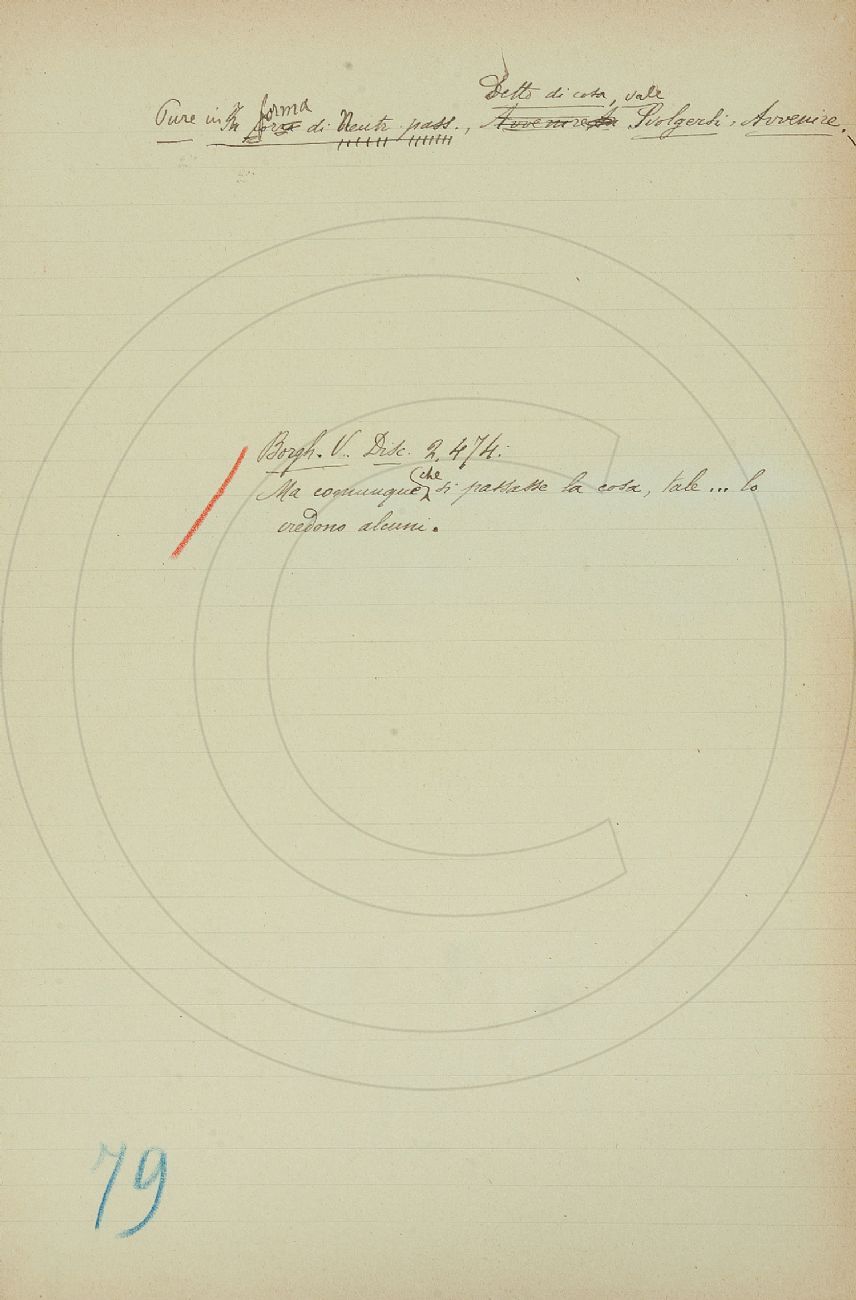 Detto di cosa, vale
Pure in In forma forza di Neutr. pass., Avvenire Svolgersi, Avvenire.
Borgh. V. Disc. 2, 474:
Ma comunque che si passasse la cosa, tale ... lo
credono alcuni.
79